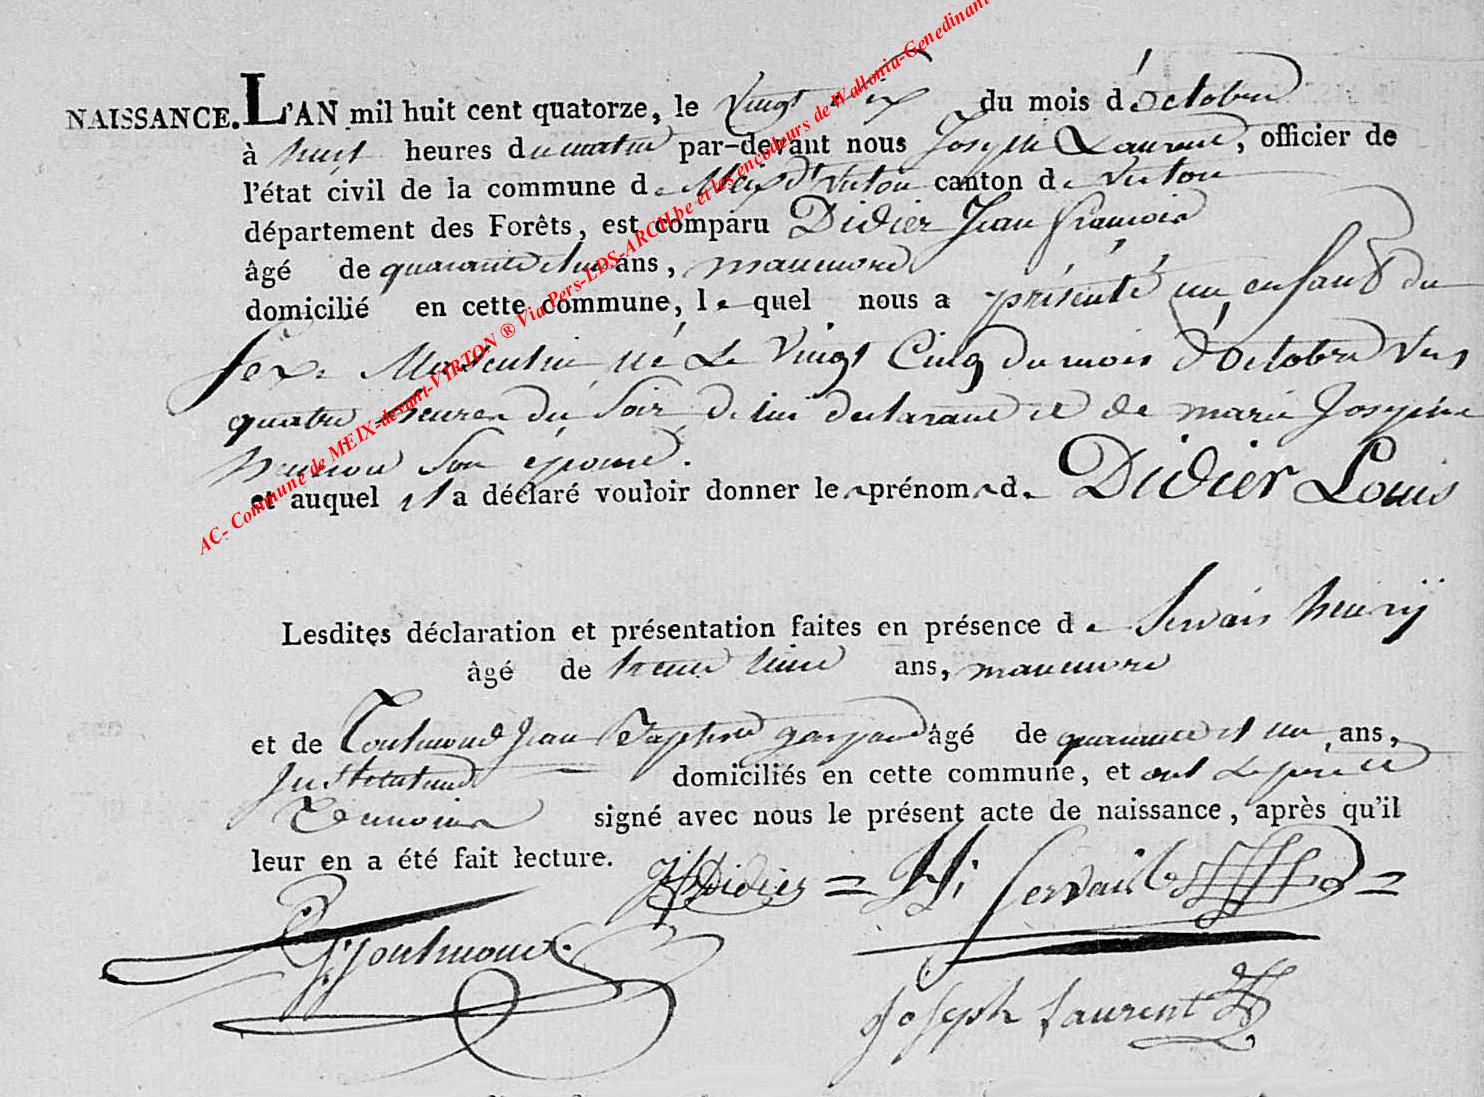 NAISSANCE. L'AN mil huit cent quatorze, le Vingt six du mois d'octobre
à huit heures du matin par-devant nous Joseph Laurent, officier de
l'état civil de la commune de Meix dt Virton canton de Virton
département des Forêts, est comparu Didier Jean françois
âgé de quarante et un ans, manuvre
domicilié en cette commune, lequel nous a présenté un enfant du
sexe Masculin né Le Vingt Cinq du mois d'octobre vers
quatre heures du Soir de lui declarant et de marie Josephine
son épouse.
et auquel il a déclaré vouloir donner le prénom de Didier Louis
Lesdites déclaration et présentation faites en présence de Servais henrÿ
âgé de ans, manuvre
et de Toutmond Jean Baptiste âgé de quarante et un ans,
Instituteur domiciliés en cette commune, et ont
Temoins signé avec nous le présent acte de naissance, après qu'il
leur en a été fait lecture.
Didier = H Servais =
Joseph Laurent
AC- Commune de MEIX-devant-VIRTON ® Via Pers-LDS-ARCH.be et les encodeurs de Wallonia-Genedinant